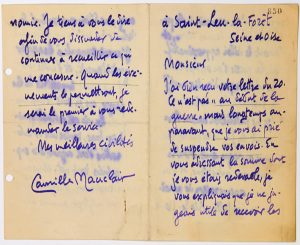 à Saint-Leu-la-Forêt
Seine et Oise
850
Monsieur
J'ai bien reçu votre lettre du 20.
Ce n'est pas au début de la
guerre, mais longtemps au-
paravant, que je vous ai prié
de suspendre vos envois. En
vous adressant la somme dont
je vous étais redevable, je
vous expliquais que je ne ju-
geais utile de recevoir les
nomie. Je tiens à vous le dire
afin de vous dissuader de
continuer à recueillir ce qui
me concerne. Quand les évé-
nements le permettront, je
serai le premier à vous rede-
mander le service.
Mes meilleures civilités
Camille Mauclair